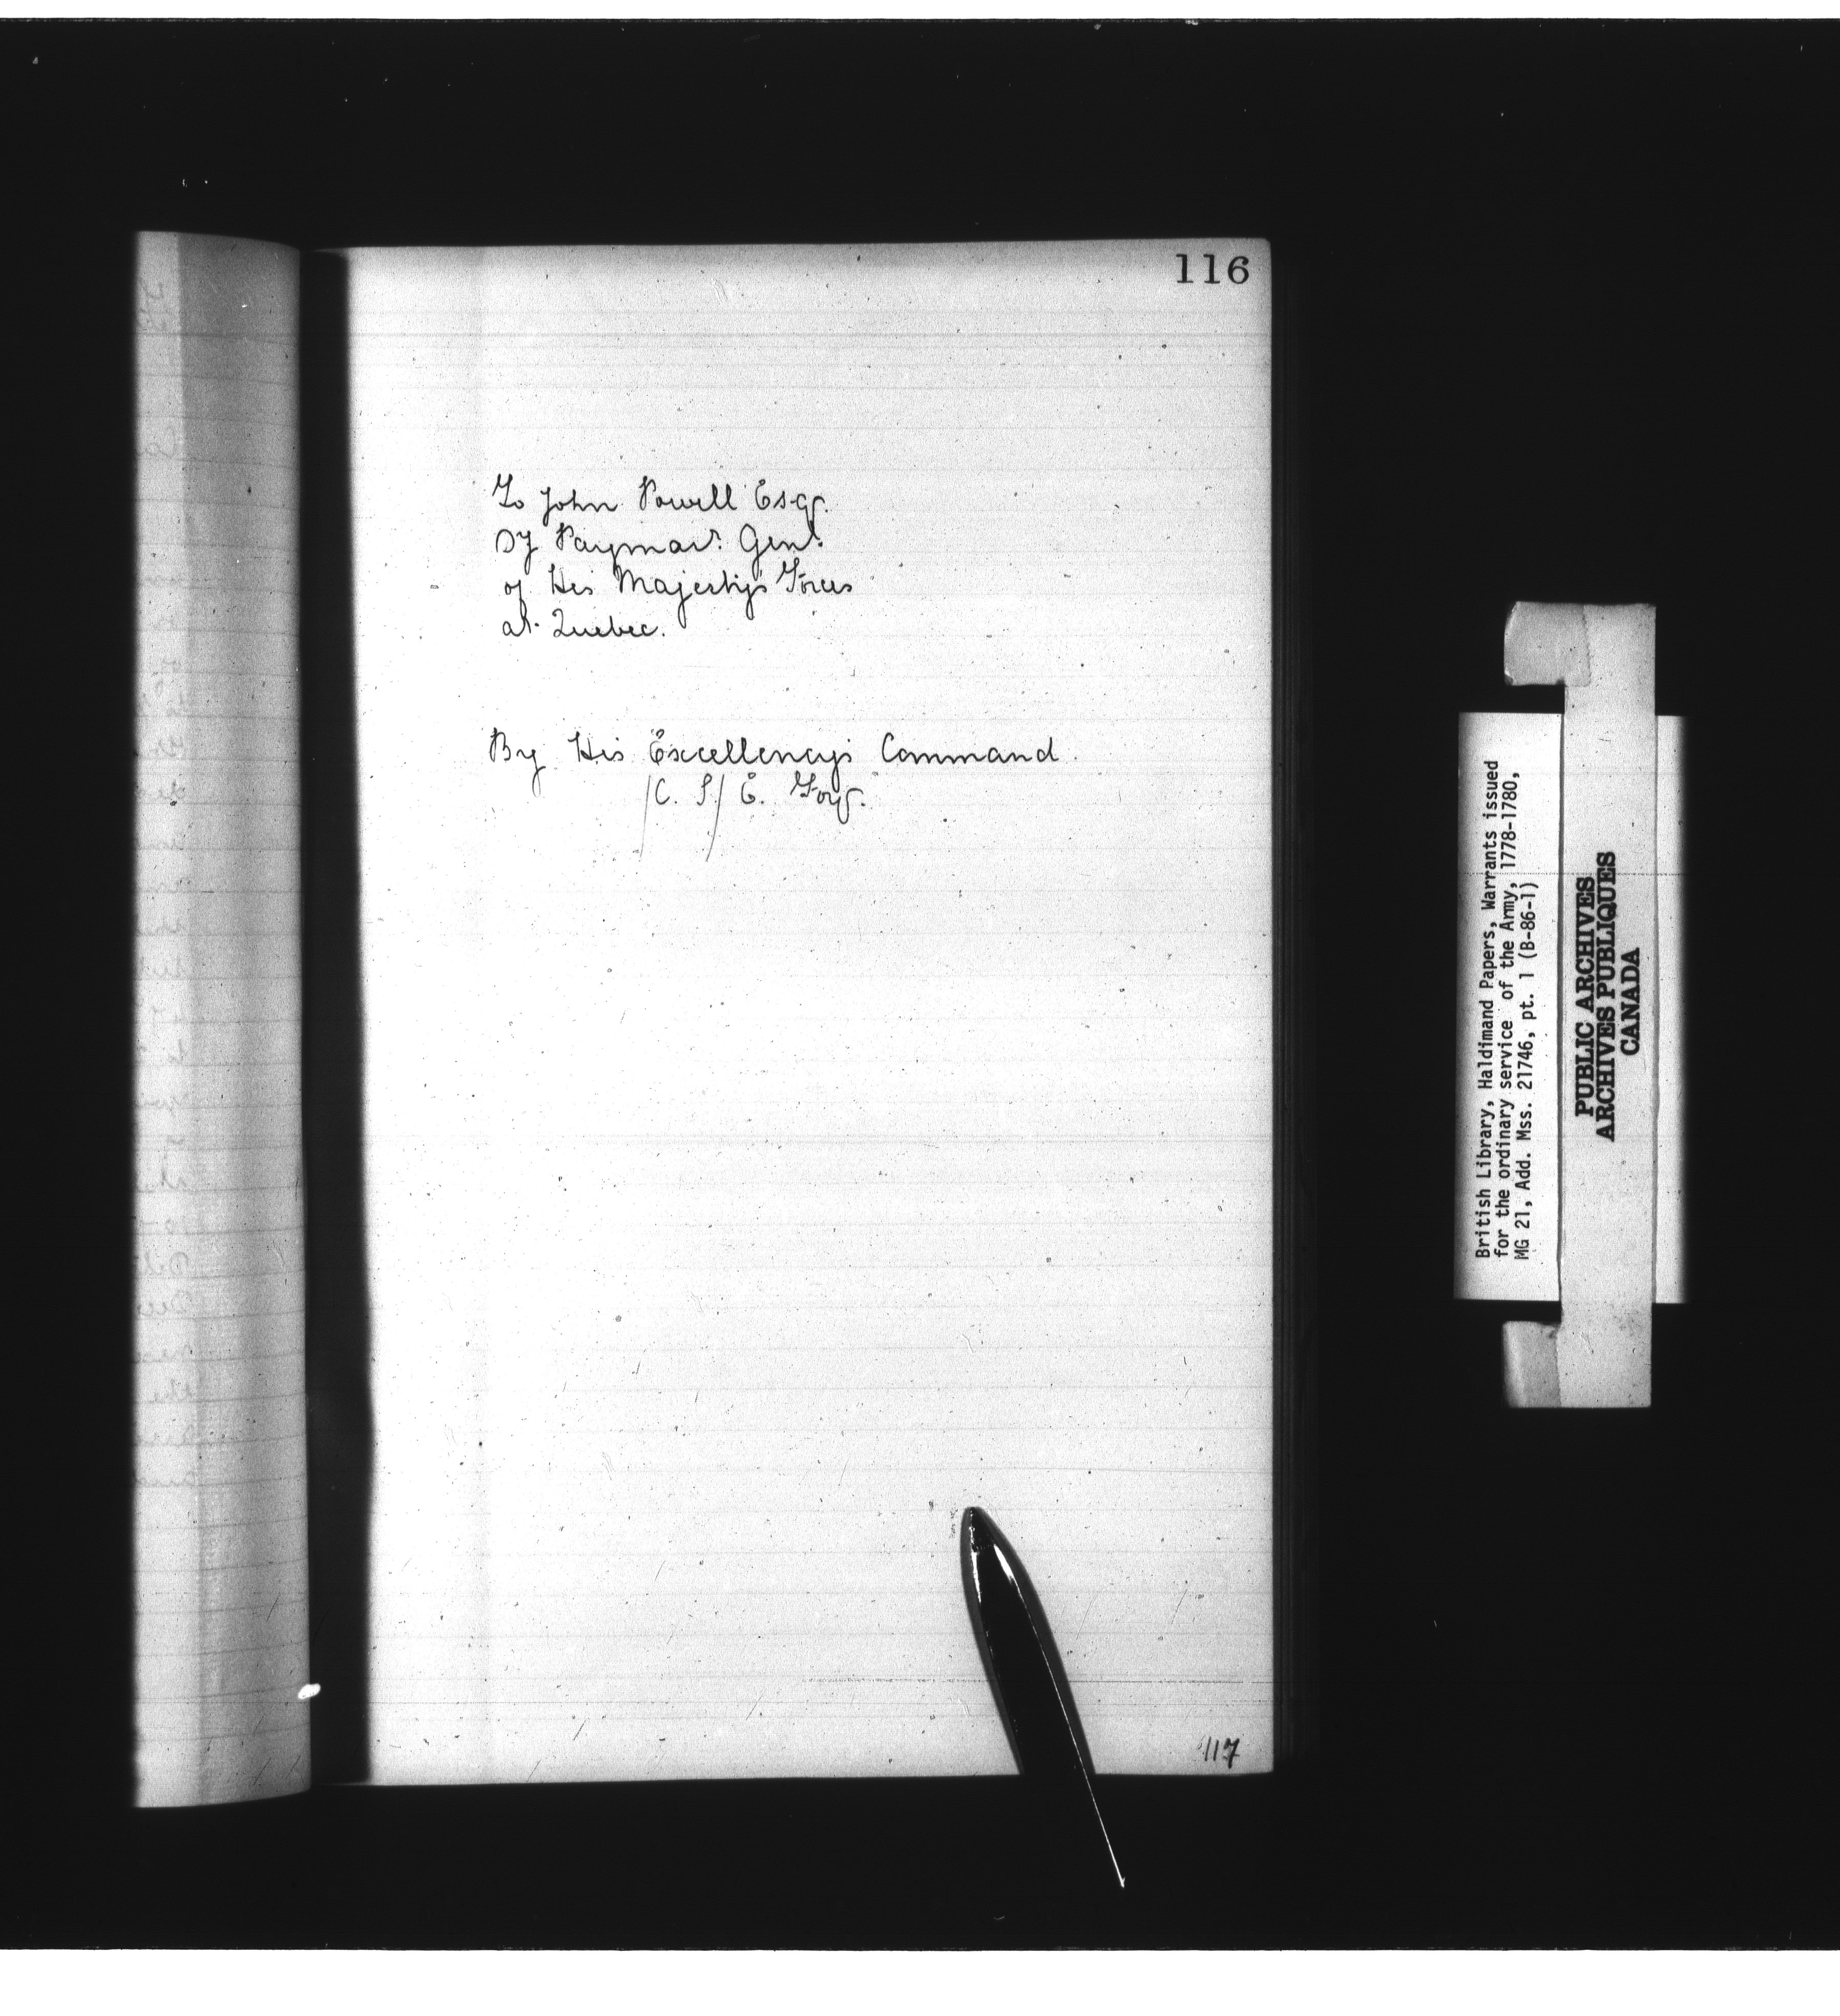 116
To John Powell Esqr.
Dy Paymast. Genl.
of His Majesty's Forces
at Quebec.
By His Excellency's Command.
/C. S/ E. Foyr.
117
British Library, Haldimand Papers, Warrants issued
for the ordinary service of the Army, 1778-1780,
MG 21, Add. Mss. 21746, pt. 1 (B-86-1)
PUBLIC ARCHIVES
ARCHIVES PUBLIQUES
CANADA